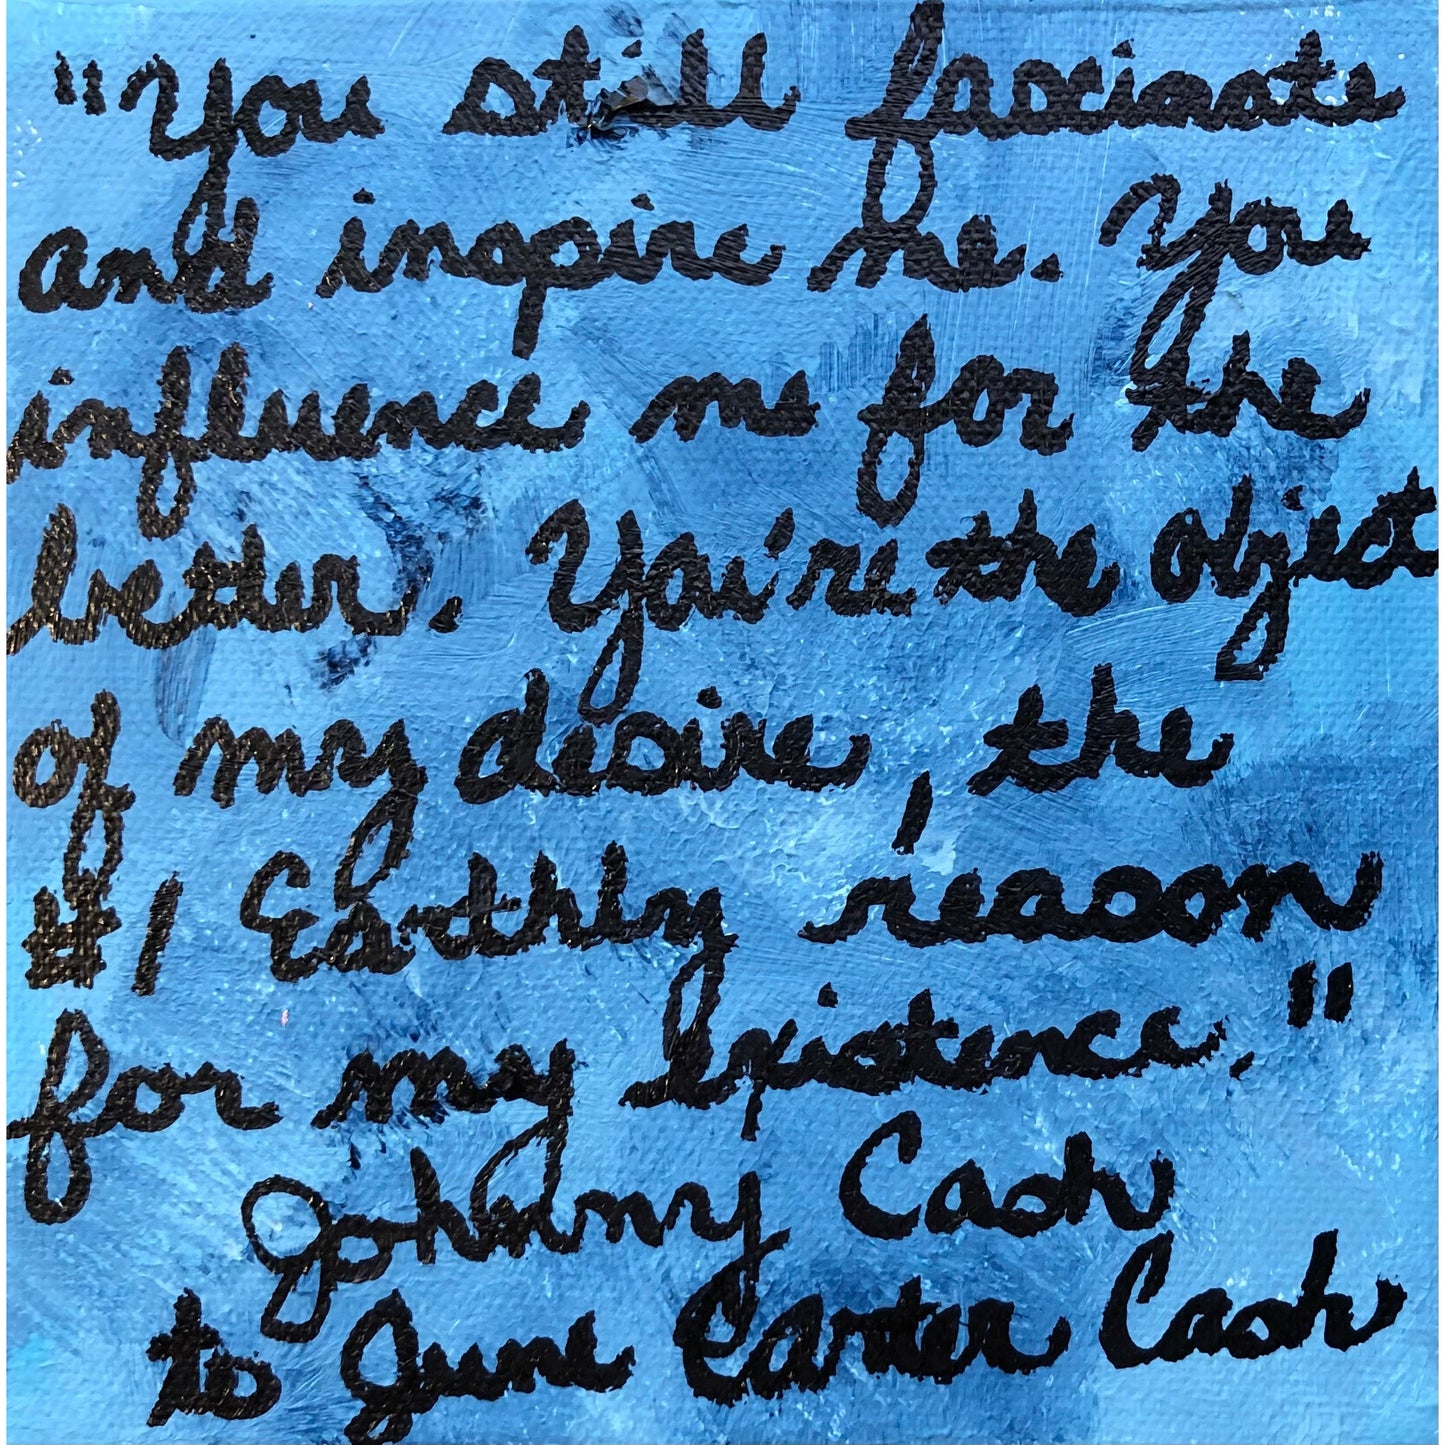 "You still fascinate
and inspire me. You
influence me for the
better. You're the object
of my desire, the
#1 Earthly reason
for my existence."
Johnny Cash
to June Carter Cash